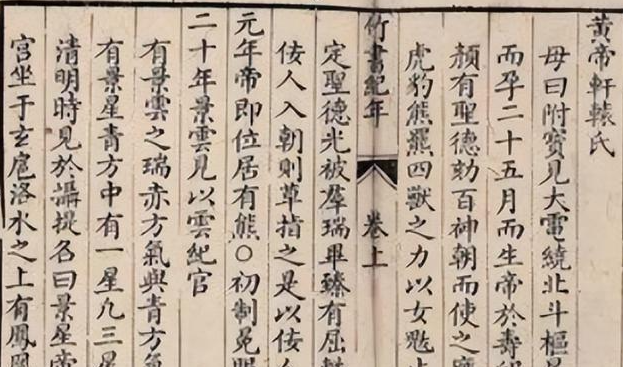 黄帝軒轅氏
母曰附寶見大電繞北斗樞星
而孕二十五月而生帝於壽
顏有聖德劾百神朝而使之應
虎豹熊羆四獸之力以女魃
竹書紀年 卷上
定聖德光被羣瑞畢臻有屈軼
佞人入朝則草指之是以佞人
元年帝即位居有熊○初制冕服
二十年景雲見以雲紀官
有景雲之瑞赤方氣與青方氣
有景星青方中有一星凡三星
清明時見於攝提名曰景星帝
宫坐于玄扈洛水之上有鳳凰